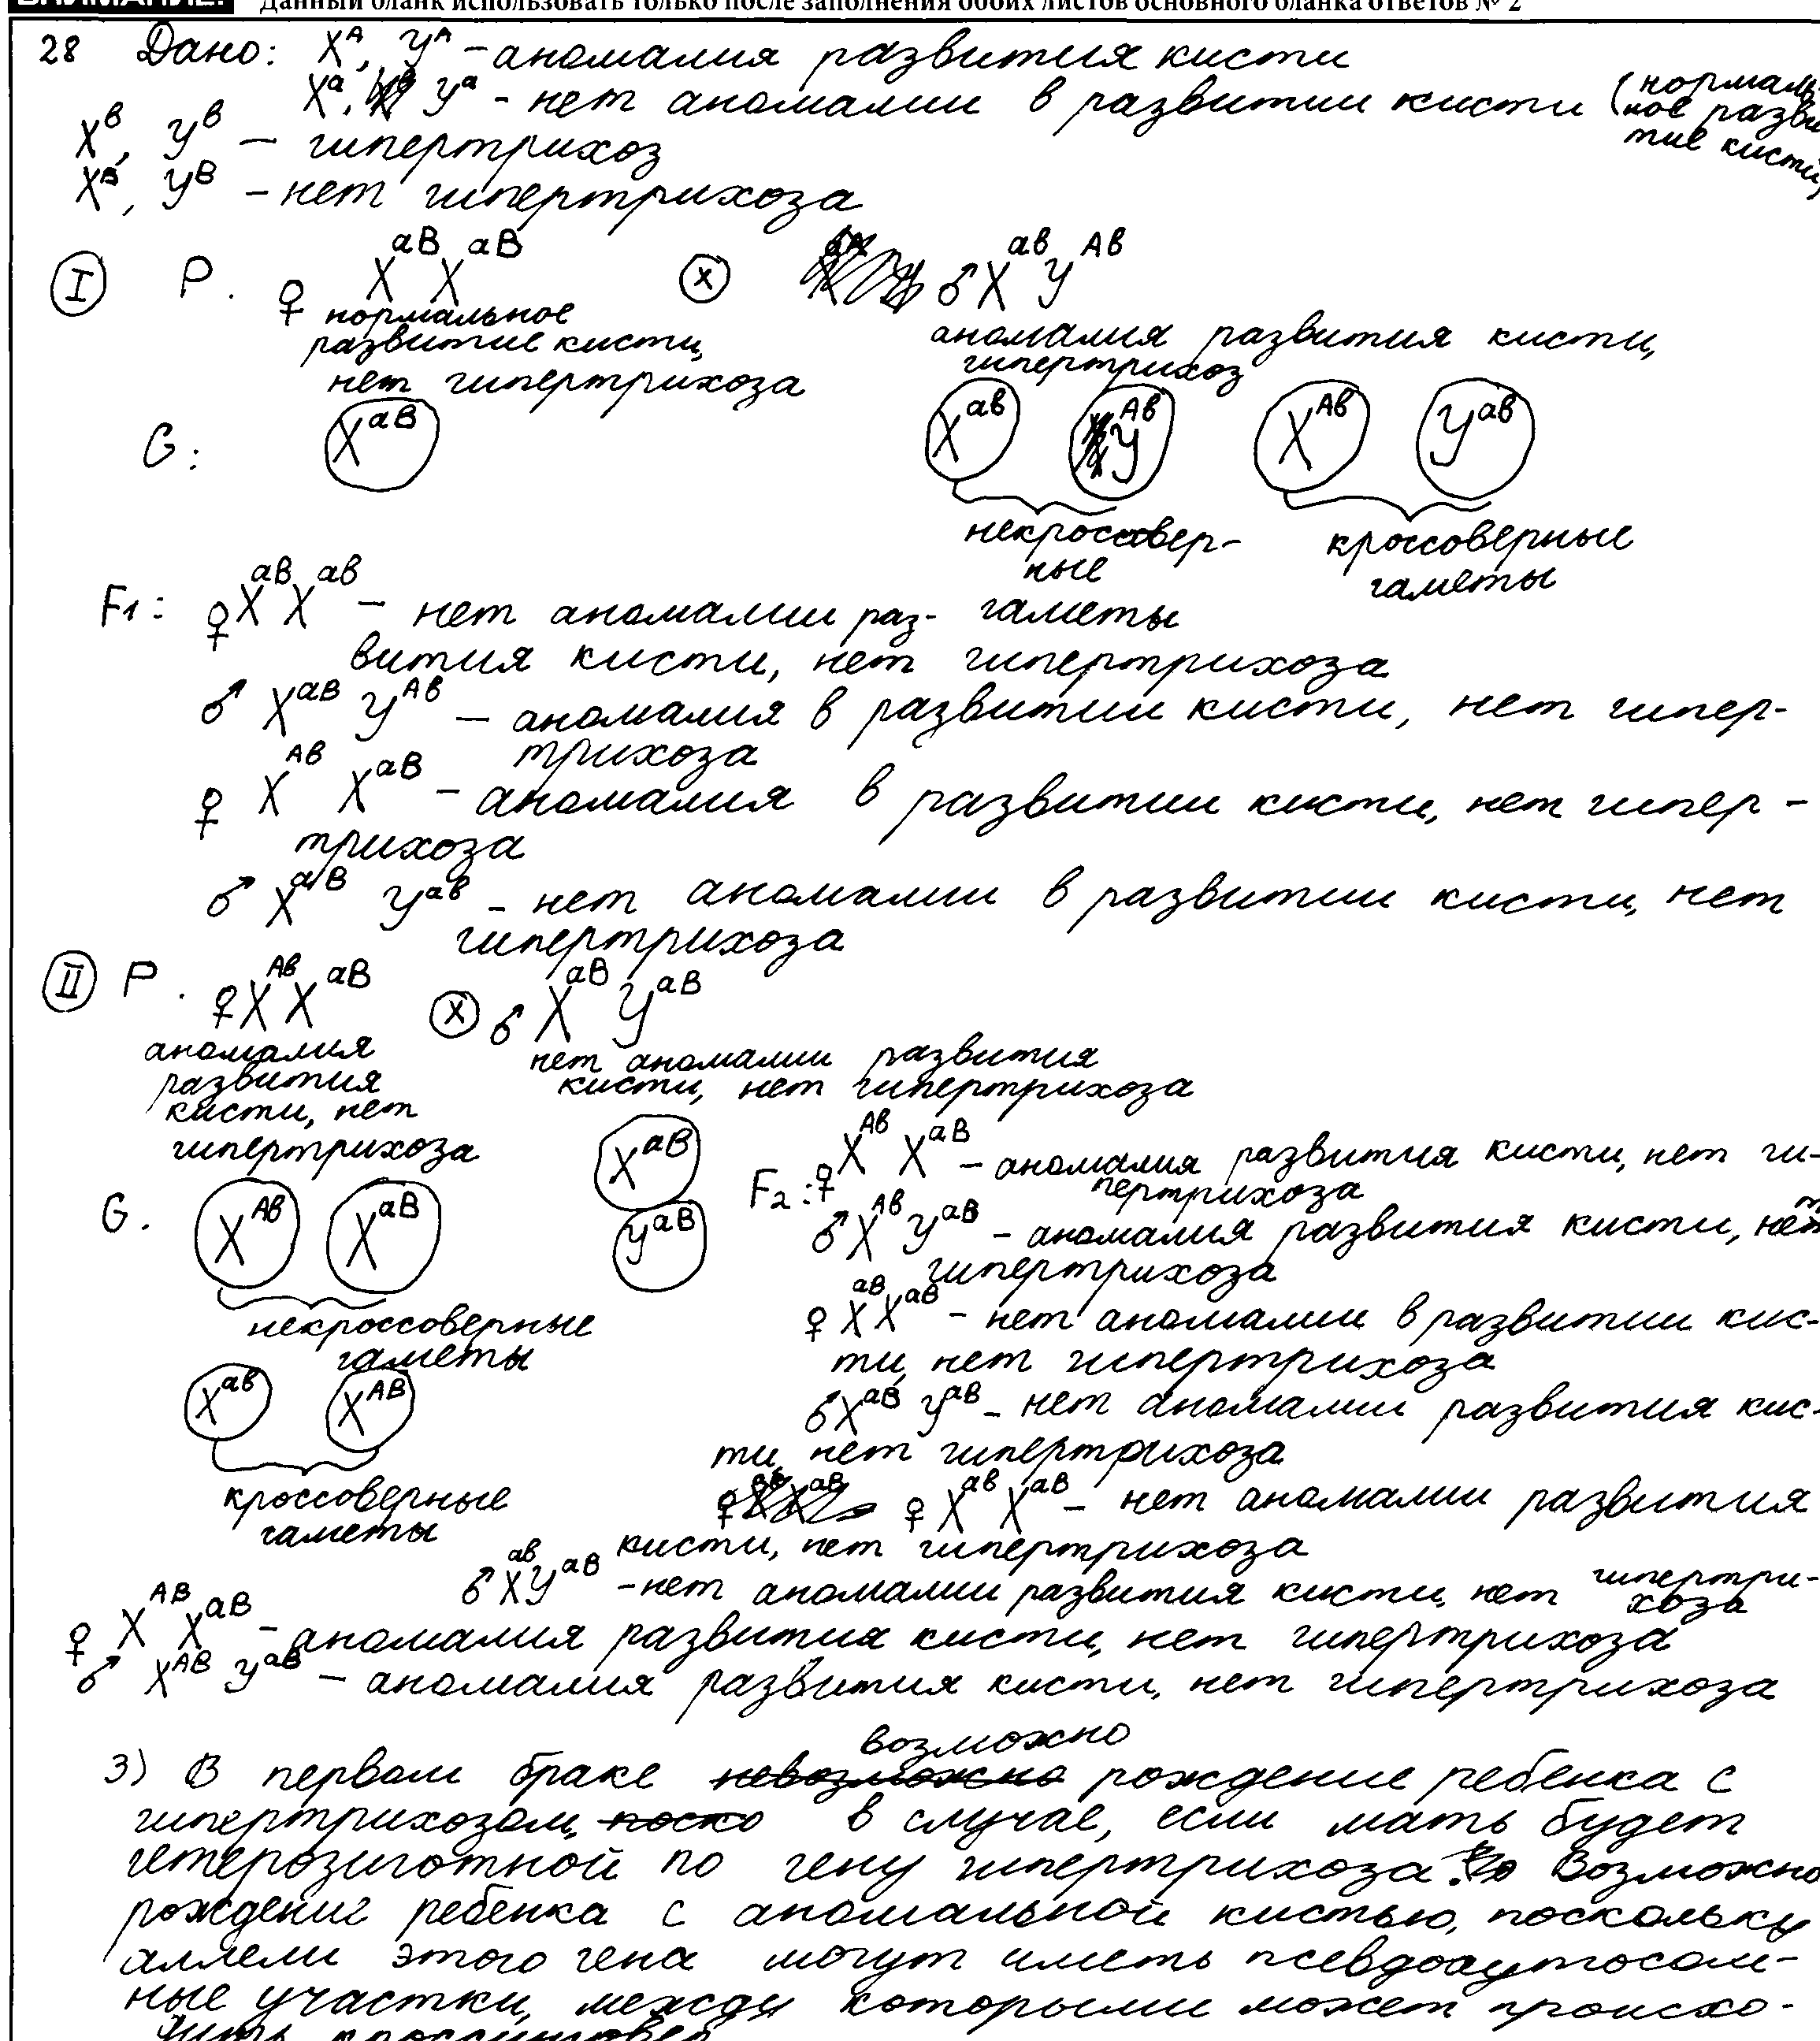 ВНИМАНИЕ! Данный бланк использовать только после заполнения обоих листов основного бланка ответов № 2
28 Дано: X^A, Y^A – аномалия развития кисти
X^a, Y^a – нет аномалии в развитии кисти (нормаль-
ное разви
тие кисти)
X^в, Y^в – гипертрихоз
X^В, Y^В – нет гипертрихоза
I P. ♀ X^aB X^aB x ♂ X^aв Y^Aв
нормальное
развитие кисти,
нет гипертрихоза
аномалия развития кисти,
гипертрихоз
G: X^aB X^aв Y^Aв X^Aв Y^aв
некроссовер-
ные
гаметы
кроссоверные
гаметы
F1: ♀ X^aB X^aв – нет аномалии раз-
вития кисти, нет гипертрихоза
♂ X^aB Y^Aв – аномалия в развитии кисти, нет гипер-
трихоза
♀ X^Aв X^aB – аномалия в развитии кисти, нет гипер-
трихоза
♂ X^aB Y^aв – нет аномалии в развитии кисти, нет
гипертрихоза
II P. ♀ X^Aв X^aB x ♂ X^aB Y^aB
аномалия
развития
кисти, нет
гипертрихоза
нет аномалии развития
кисти, нет гипертрихоза
G. X^Aв X^aB X^aB Y^aB
некроссоверные
гаметы
X^aв X^AB
кроссоверные
гаметы
F2: ♀ X^Aв X^aB – аномалия развития кисти, нет ги-
пертрихоза
♂ X^Aв Y^aB – аномалия развития кисти, нет
гипертрихоза
♀ X^aB X^aB – нет аномалии в развитии кис-
ти, нет гипертрихоза
♂ X^aB Y^aB – нет аномалии развития кис-
ти, нет гипертрихоза
♀ X^aв X^aB – нет аномалии развития
кисти, нет гипертрихоза
♂ X^aв Y^aB – нет аномалии развития кисти, нет гипертри-
хоза
♀ X^AB X^aB – аномалия развития кисти, нет гипертрихоза
♂ X^AB Y^aB – аномалия развития кисти, нет гипертрихоза
возможно
3) В первом браке невозможно рождение ребенка с
гипертрихозом, поско в случае, если мать будет
гетерозиготной по гену гипертрихоза. Возможно
рождение ребенка с аномальной кистью, поскольку
аллели этого гена могут иметь псевдоаутосом-
ные участки, между которыми может происхо-
дить кроссинговер